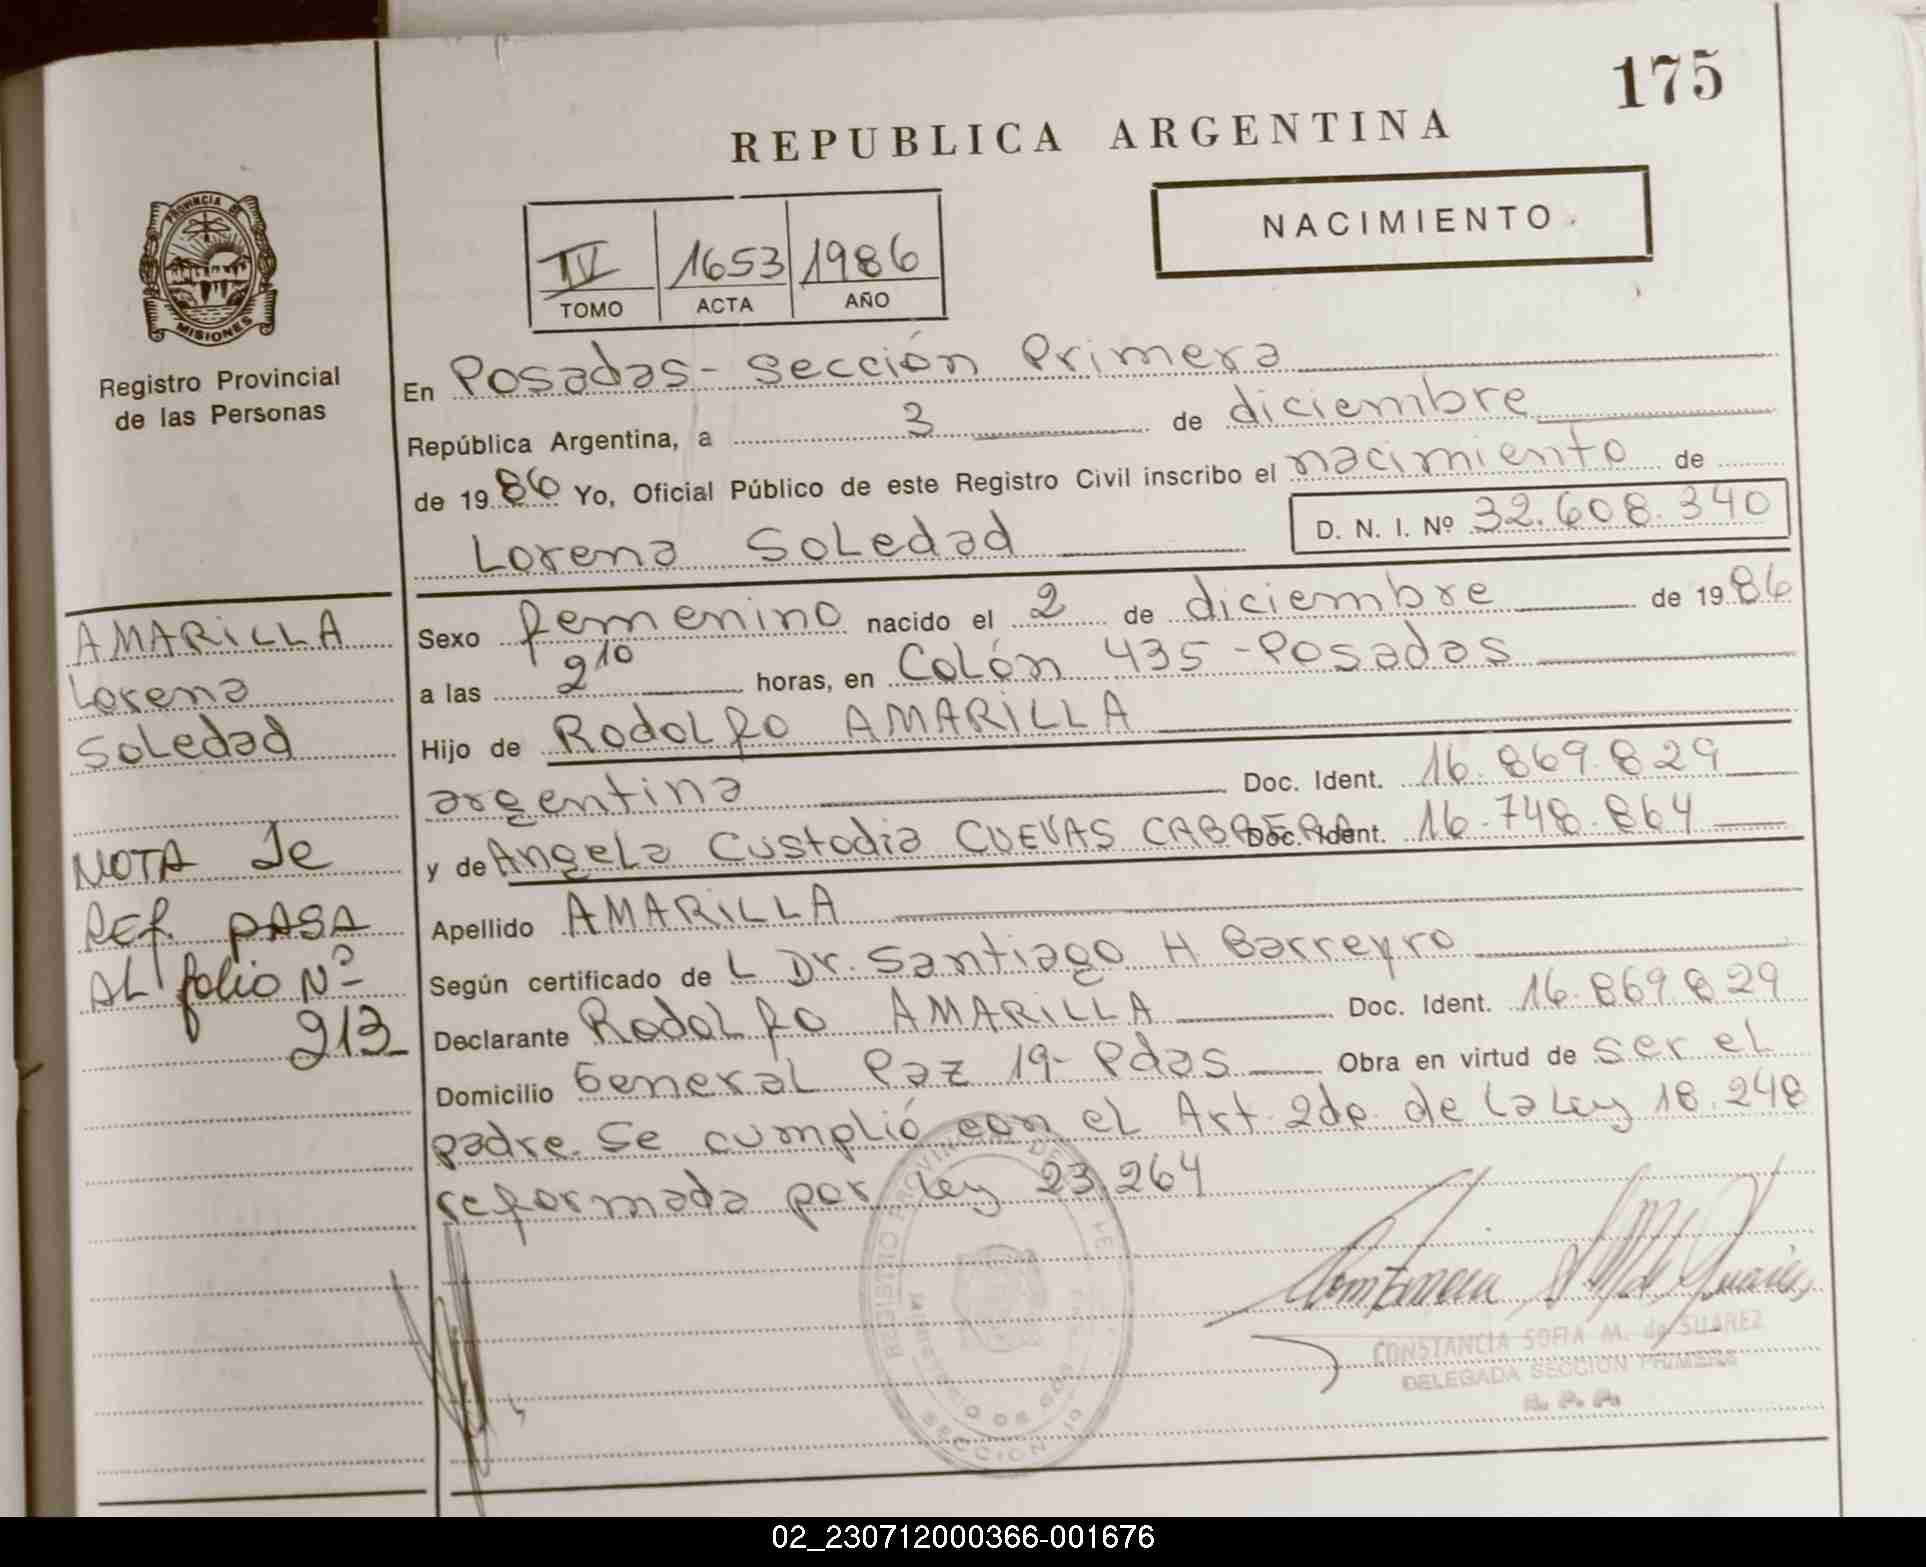 175
REPUBLICA ARGENTINA
NACIMIENTO
IV 1653 1986
TOMO ACTA AÑO
PROVINCIA DE MISIONES
Registro Provincial
de las Personas
En Posadas - Sección Primera
República Argentina, a 3 de diciembre
de 1986 Yo, Oficial Público de este Registro Civil inscribo el nacimiento de
Lorena Soledad D. N. I. Nº 32.608.340
Sexo femenino nacido el 2 de diciembre de 1986
a las 9 10 horas, en Colón 435 - Posadas
Hijo de Rodolfo AMARILLA
argentina Doc. Ident. 16.869.829
y de Angela Custodia CUEVAS CABRERA Doc. Ident. 16.748.864
Apellido AMARILLA
Según certificado de L Dr. Santiago H Barreyro
Declarante Rodolfo AMARILLA Doc. Ident. 16.869.829
Domicilio General Paz 19 - Pdas Obra en virtud de ser el
padre. Se cumplió con el Art. 2do. de la Ley 18.248
reformada por Ley 23.264
AMARILLA
Lorena
Soledad
NOTA de
REF. PASA
AL folio Nº
913
CONSTANCIA SOFIA M. de SUAREZ
DELEGADA SECCION PRIMERA
02_230712000366-001676